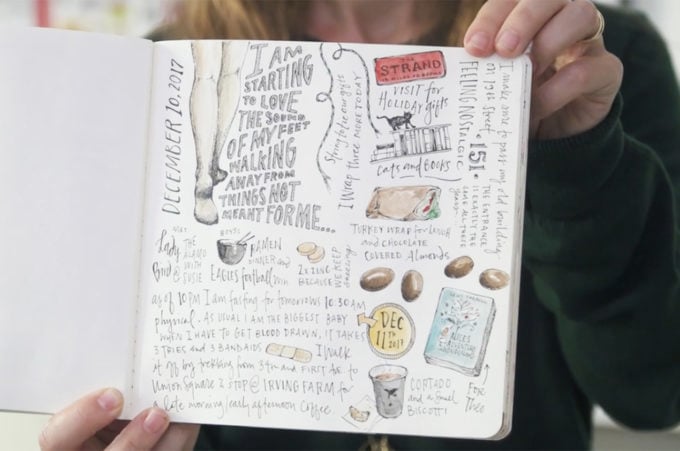 DECEMBER 10, 2017
I AM
STARTING
TO LOVE
THE SOUND
OF MY FEET
WALKING
AWAY FROM
THINGS NOT
MEANT FOR ME...
String to tie our gifts
I Wrap three MORE TODAY
THE
STRAND
VISIT for
HOLIDAY gifts
Cats and BOOKS
I make sure to pass my old building
on 19th Street
FEELING NOSTALGIC
151
THE ENTRANCE
IS EXACTLY THE
SAME ALL THESE
years...
TURKEY WRAP for LUNCH
and CHOCOLATE
COVERED Almonds
Lady
Bird @
THE
ALAMO
WITH
SUSIE
BOYS:
RAMEN
DINNER and
EAGLES football win
2 x ZINC
BECAUSE
WE KEEP
sneezing
as of 10 PM I am fasting for tomorrows 10:30 AM
physical. AS USUAL I AM THE BIGGEST BABY
when I HAVE TO GET BLOOD DRAWN, IT TAKES
3 TRIES and 3 BANDAIDS
I Walk
it off by trekking from 34th and FIRST AVE to
Union Square & STOP @ IRVING FARM for
a late morning/early afternoon Coffee
DEC
11th
2017
ALICE'S
ADVENTURES
WONDERLAND
For
Theo
CORTADO
and a Small
BISCOTTI